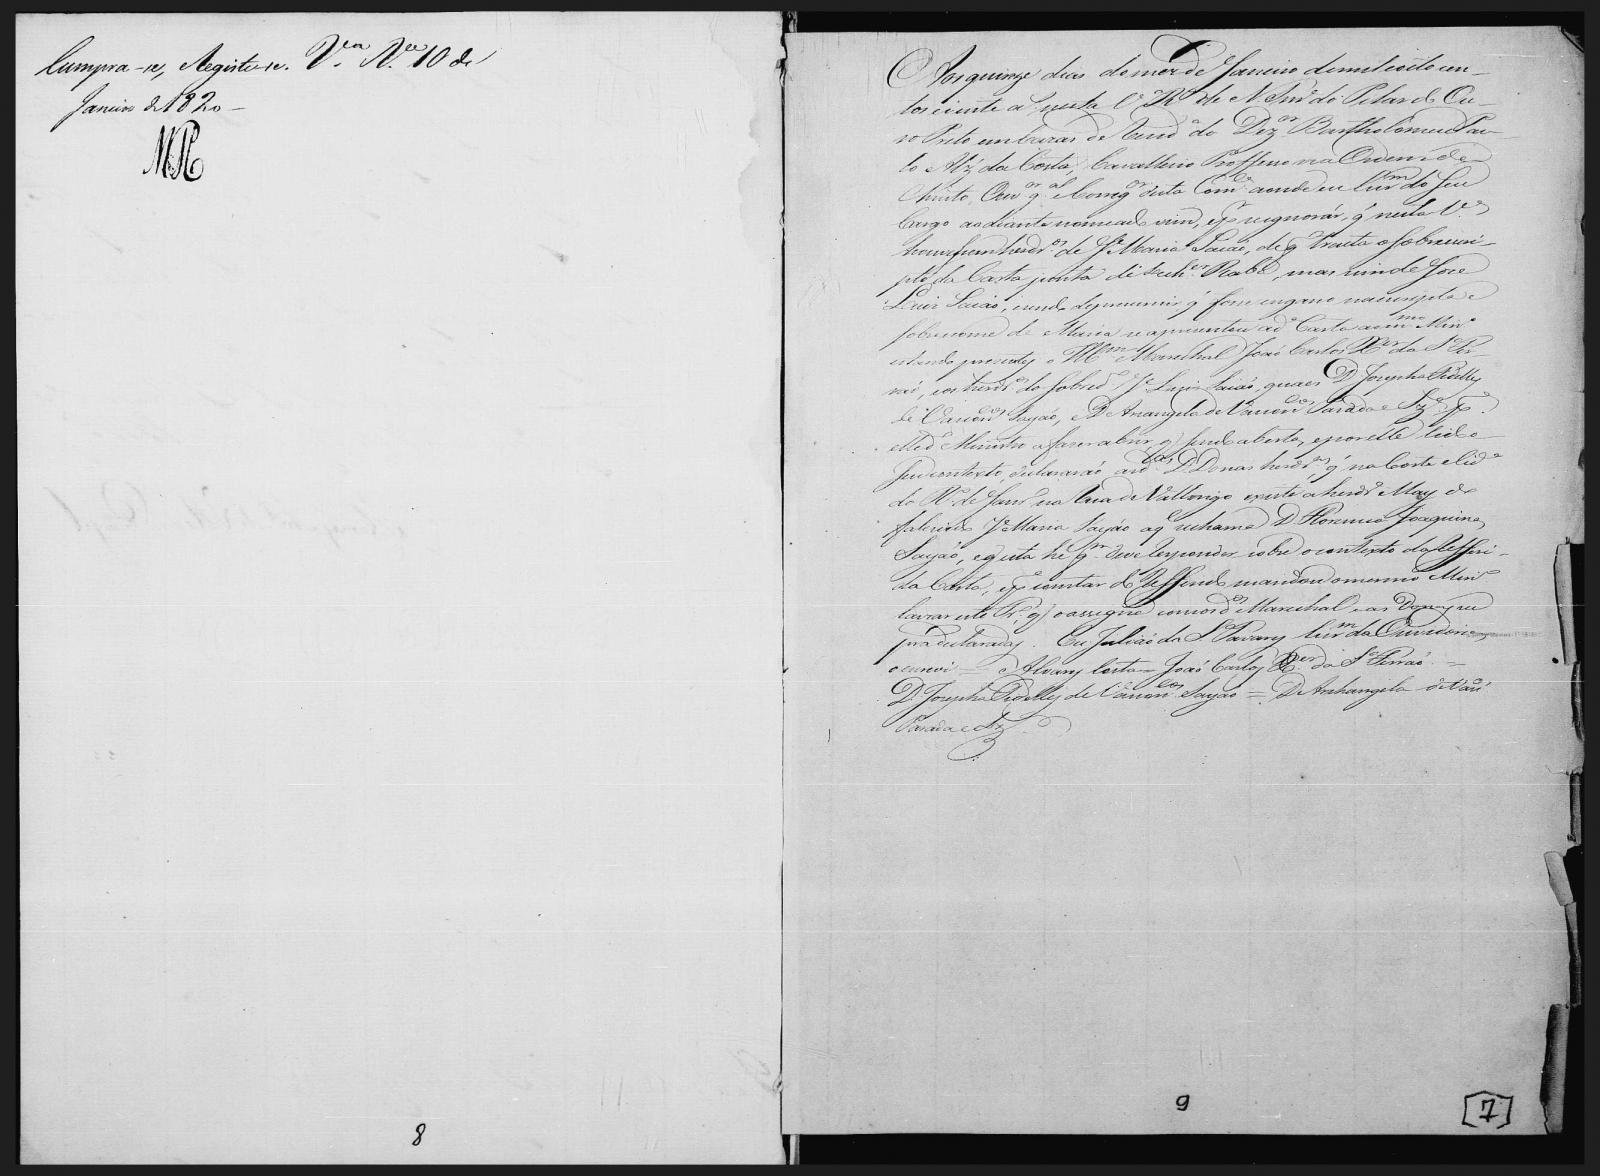 Cumpra-se, Registe-se. V.ª R.ca 10 de
Janeiro de 1820 –
Aos quinze dias do mez de Janeiro de mil e oito cen-
tos e vinte a' nesta V.ª R.ca de N. Snr.ª do Pilar do Ou-
ro Preto em Cazas de do Dez.or Bartholomeu Pau-
lo Alz' da Costa, Cavalleiro Proffesso na Ordem de
Christo, Ouv.or g.al e Correg.or desta Com.ca aonde eu Escr.m do seu
Cargo ao diante nomeado vim, e p.r se ignorár, q' nesta V.ª
houvessem herdr.os de J.e Maria Saião, de q' tracta o sobrescri-
pto da Carta junta de mas sim de Jose
Luis Saião, sendo de presumir q' fosse engano na escripta o
sobrenome de Maria se aprezentou a d.ª Carta ao m.mo Min.o
estando prezentes o Ill.mo Marechal João Carlos X.er da S.ª Fer-
rão, e os herdr.os do sobred.o J.e Luis Saião, quaes D. Josepha
de Vascon.os Sayão, e D. Arcangela de Vascon.os Parada e Sz.ª, p.r
elle d.o Ministro a fazer abrir, q' sendo aberta, e por elle lido o
seu contexto, declararão as d.as D. Donas herdr.as q' na Corte e Cid.e
do R.o de Jan.ro na Rua de Vallongo existe a herdr.ª May do
falecido J.e Maria Sayão a q.l se chama D. Florencia Joaquina
Sayão, e q' esta he q.m deve responder sobre o contexto da Refferi-
da Carta, e p.r constar do Refferido mandou o mesmo Min.o
lavrar este Tr.o, q' o assigna com o sd.o Marechal e as Donas su
pra declaradas. Eu Julião da S.ª Tavares Escr.m da Ouvidoria
o escrevi = Alvares Costa = João Carlos X.er da S.ª Ferrão =
D. Josepha de Vascon.os Sayão = D. Archangela de Vas.
Parada e Sz.ª
8
9
[7]